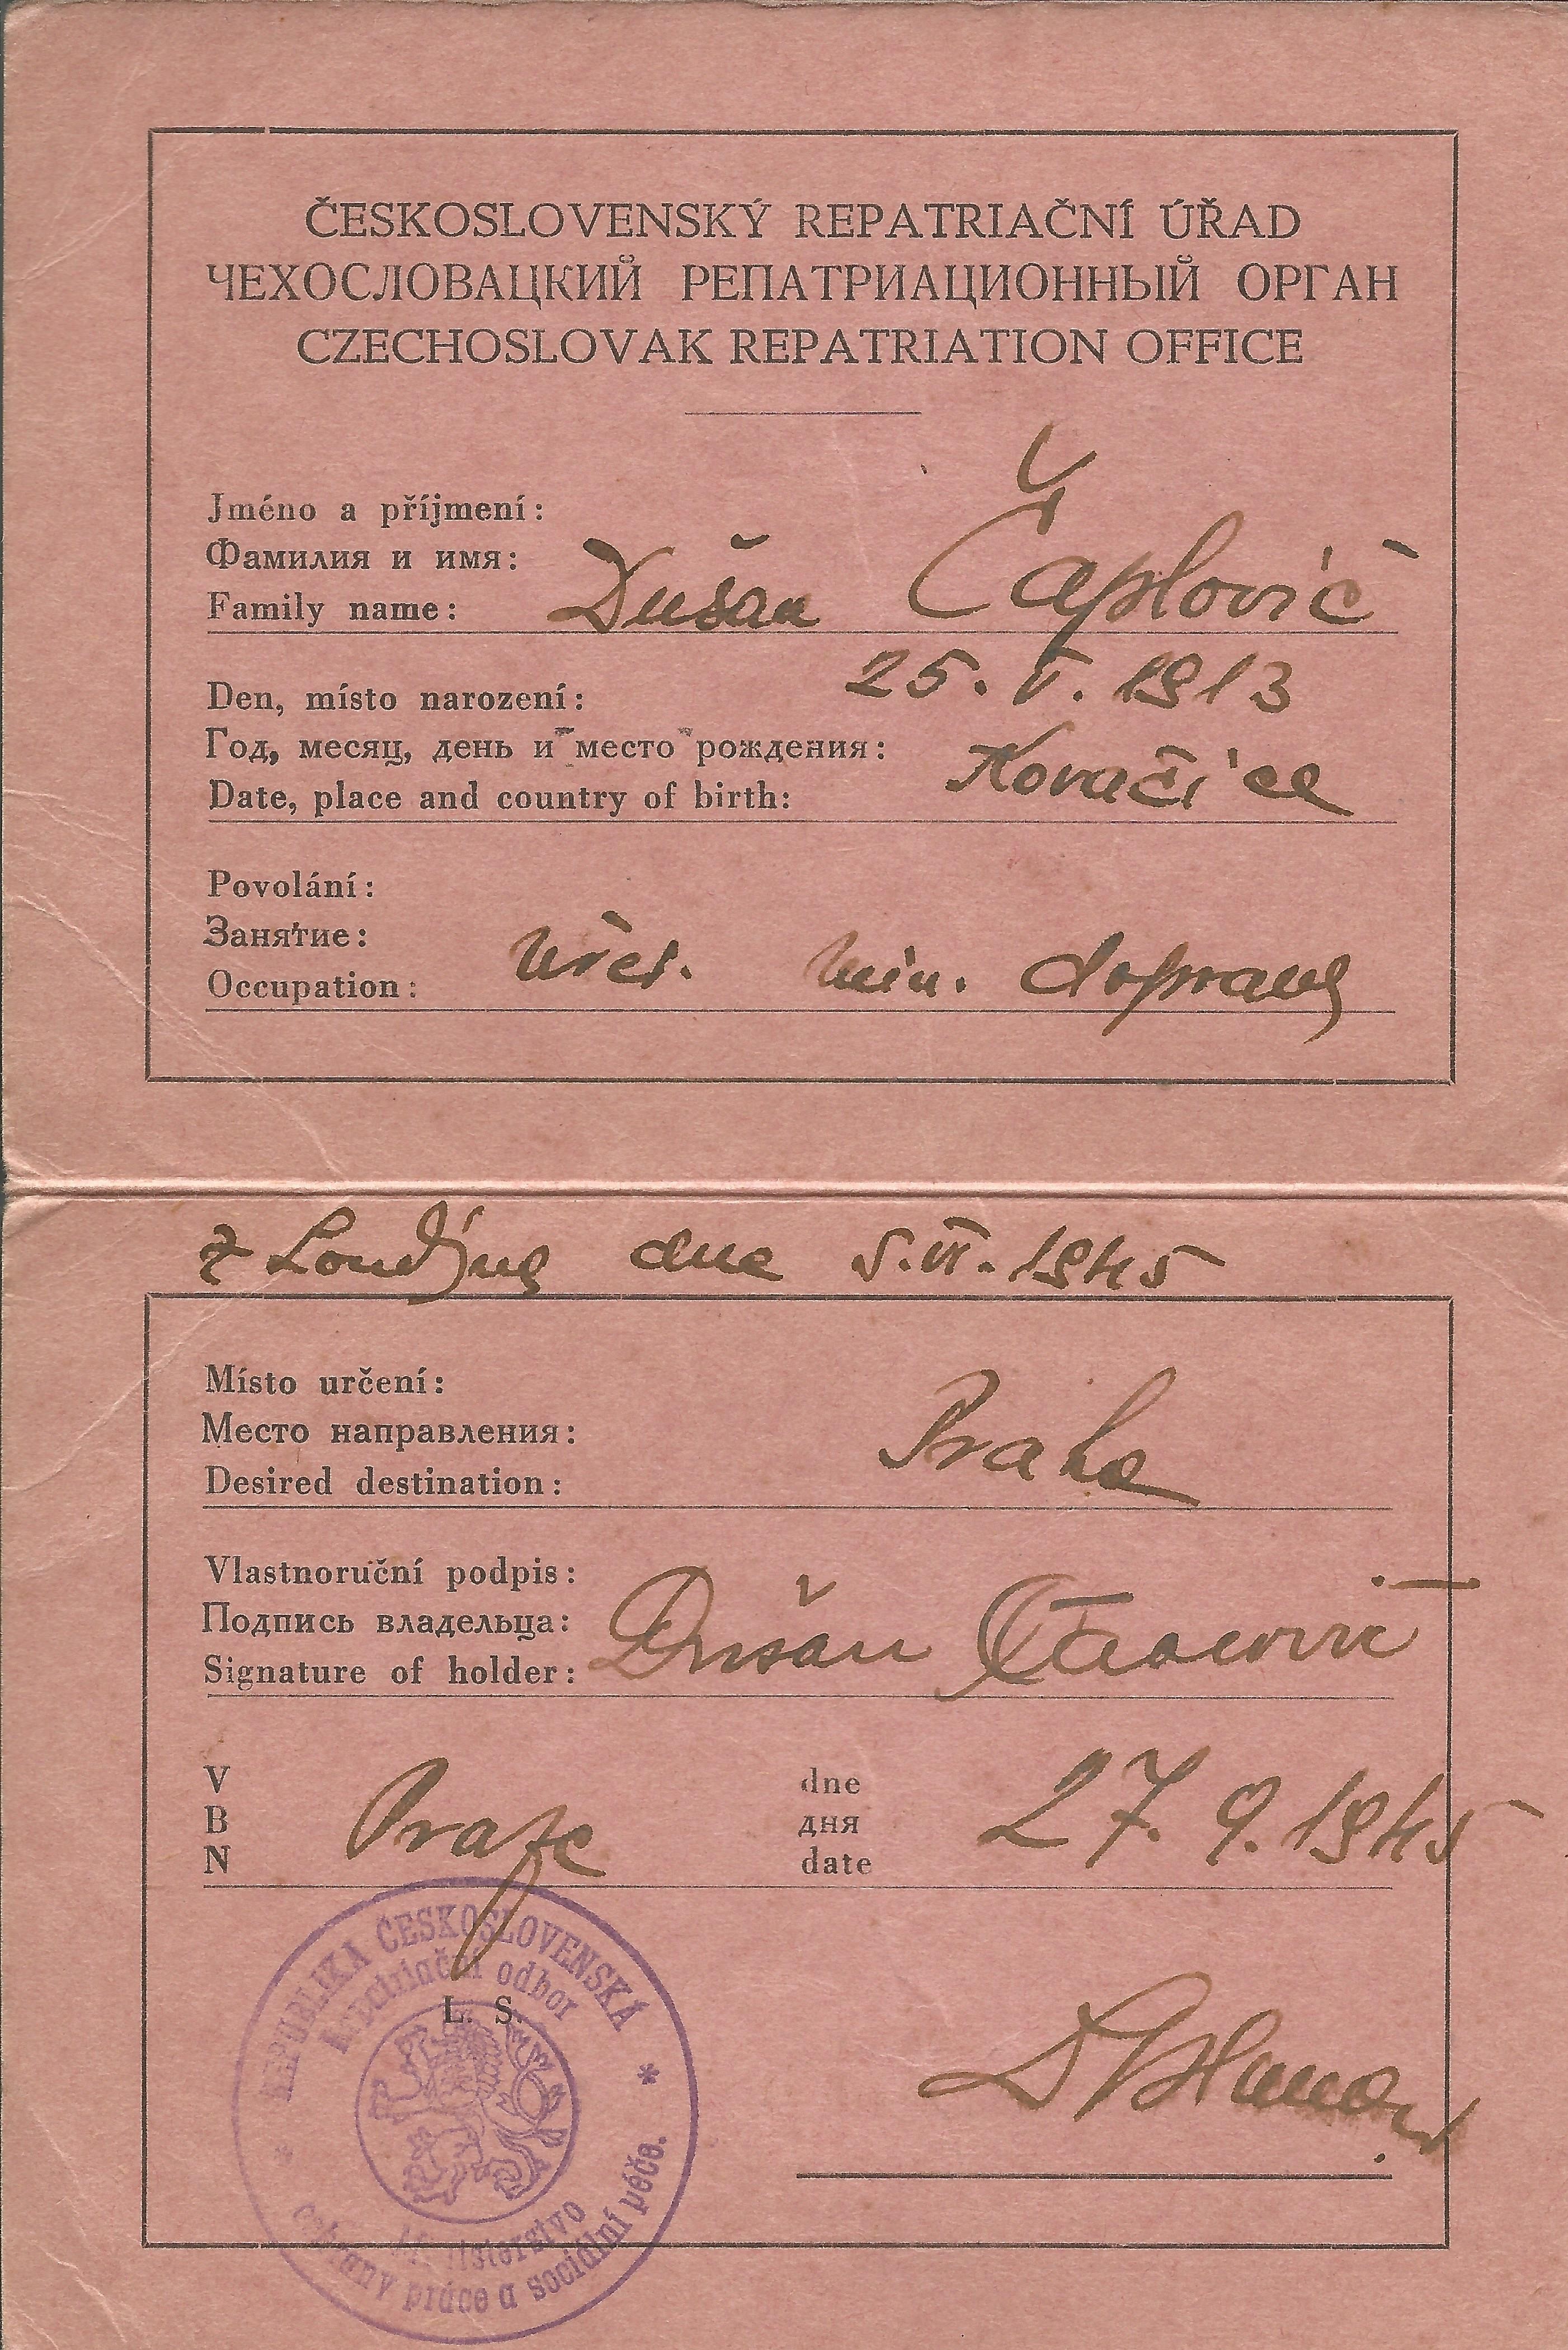 ČESKOSLOVENSKÝ REPATRIAČNÍ ÚŘAD
ЧЕХОСЛОВАЦКИЙ РЕПАТРИАЦИОННЫЙ ОРГАН
CZECHOSLOVAK REPATRIATION OFFICE
Jméno a příjmení:
Фамилия и имя:
Family name: Dušan Čaplovič
Den, místo narození: 25. V. 1913
Год, месяц, день и место рождения: Kovačica
Date, place and country of birth:
Povolání:
Занятие:
Occupation: úřed. min. dopravy
z Londýna dne 5. VI. 1945
Místo určení:
Место направления: Praha
Desired destination:
Vlastnoruční podpis:
Подпись владельца: Dušan
Signature of holder:
V dne
В Praze дня 27. 9. 1945
N date
REPUBLIKA ČESKOSLOVENSKÁ
Repatriační odbor
L. S.
Ministerstvo
ochrany práce a sociální péče.